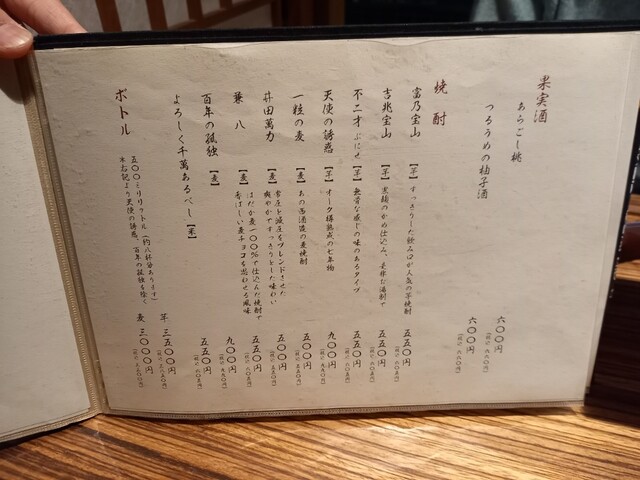 果実酒
あらごし桃 六〇〇円
(税込 六六〇円)
つるうめの柚子酒 六〇〇円
(税込 六六〇円)
焼酎
富乃宝山 【芋】 すっきりした飲み口が人気の芋焼酎 五五〇円
(税込 六〇五円)
吉兆宝山 【芋】 黒麹のかめ仕込み、是非お湯割で 五五〇円
(税込 六〇五円)
不二才 ぶにせ 【芋】 無骨な感じの味のあるタイプ 五五〇円
(税込 六〇五円)
天使の誘惑 【芋】 オーク樽熟成の七年物 九〇〇円
(税込 九九〇円)
一粒の麦 【麦】 あの西酒造の麦焼酎 五〇〇円
(税込 五五〇円)
井田萬力 【麦】 常圧と減圧をブレンドさせた
爽やかですっきりとした味わい 五〇〇円
(税込 五五〇円)
兼八 【麦】 はだか麦一〇〇%で仕込んだ焼酎で
香ばしい麦チョコを思わせる風味 五五〇円
(税込 六〇五円)
百年の孤独 【麦】 九〇〇円
(税込 九九〇円)
よろしく千萬あるべし 【米】 五五〇円
(税込 六〇五円)
ボトル 五〇〇ミリリットル (約八杯分あります) 芋 三五〇〇円
(税込 三八五〇円)
※上記より天使の誘惑、百年の孤独を除く 麦 三〇〇〇円
(税込 三三〇〇円)